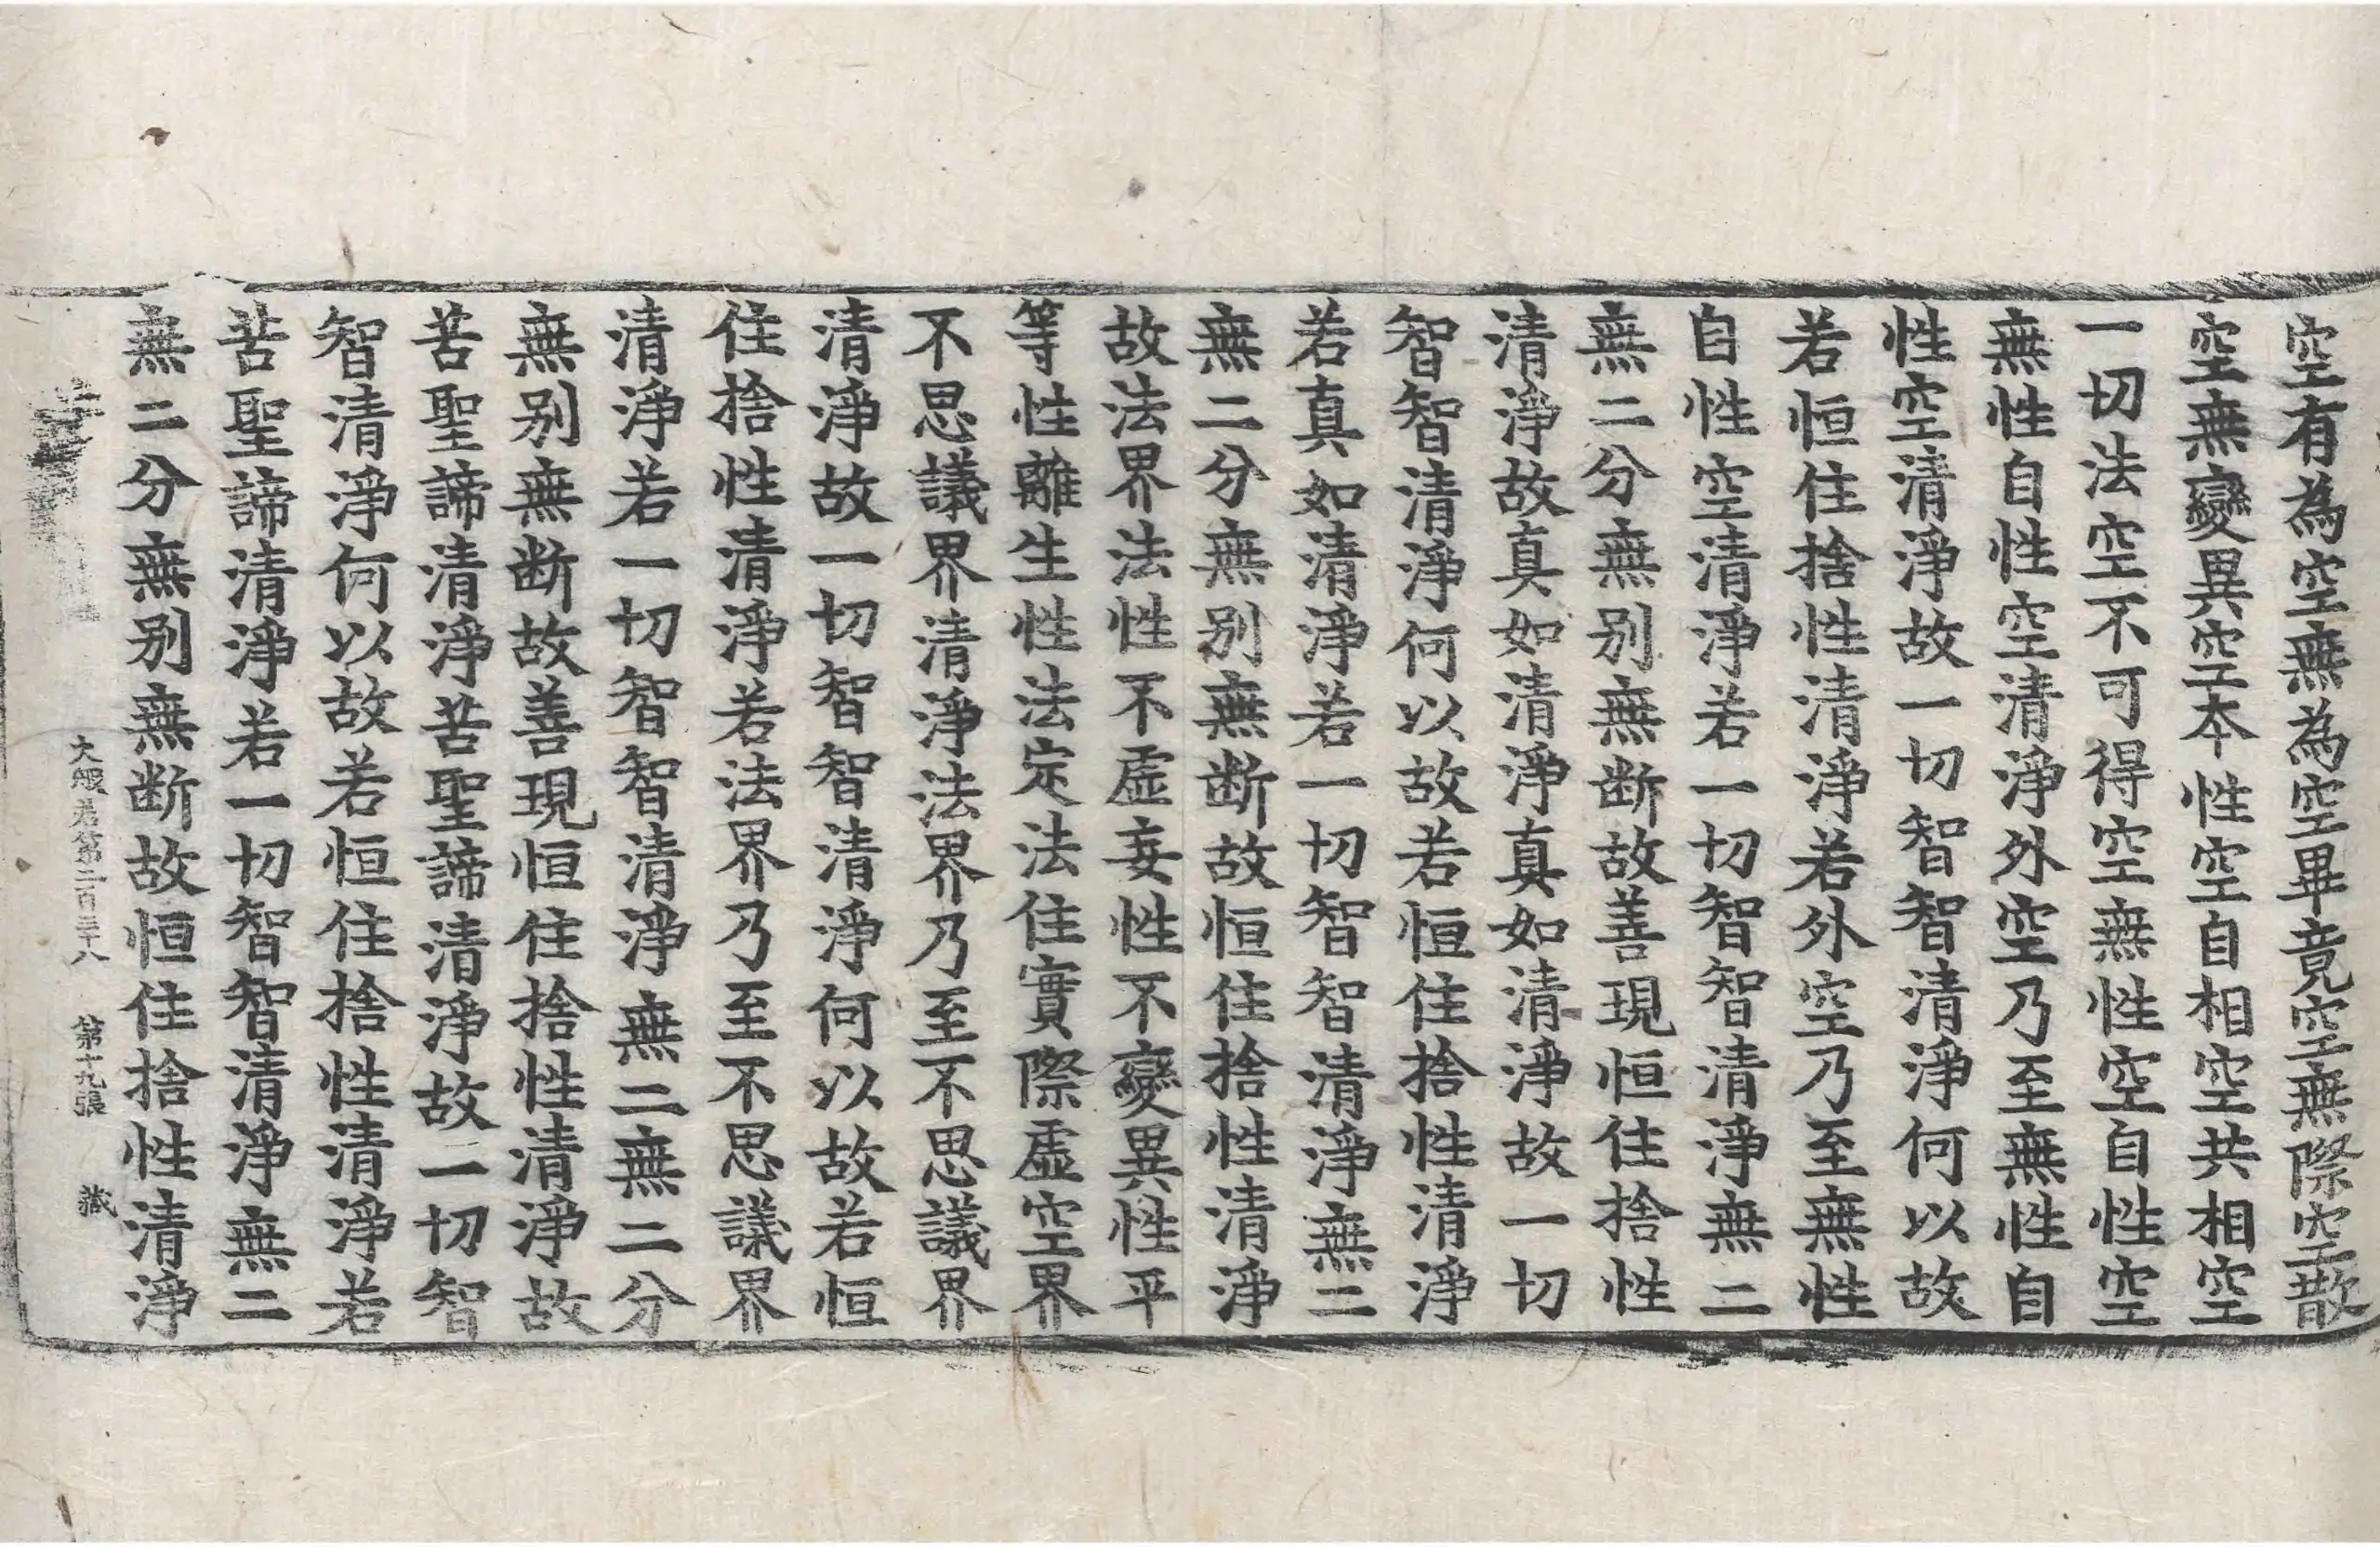 空有為空無為空畢竟空無際空散
空無變異空本性空自相空共相空
一切法空不可得空無性空自性空
無性自性空清淨外空乃至無性自
性空清淨故一切智智清淨何以故
若恒住捨性清淨若外空乃至無性
自性空清淨若一切智智清淨無二
無二分無別無斷故善現恒住捨性
清淨故真如清淨真如清淨故一切
智智清淨何以故若恒住捨性清淨
若真如清淨若一切智智清淨無二
無二分無別無斷故恒住捨性清淨
故法界法性不虛妄性不變異性平
等性離生性法定法住實際虛空界
不思議界清淨法界乃至不思議界
清淨故一切智智清淨何以故若恒
住捨性清淨若法界乃至不思議界
清淨若一切智智清淨無二無二分
無別無斷故善現恒住捨性清淨故
苦聖諦清淨苦聖諦清淨故一切智
智清淨何以故若恒住捨性清淨若
苦聖諦清淨若一切智智清淨無二
無二分無別無斷故恒住捨性清淨
大般若第二百三十八 第十九張 藏